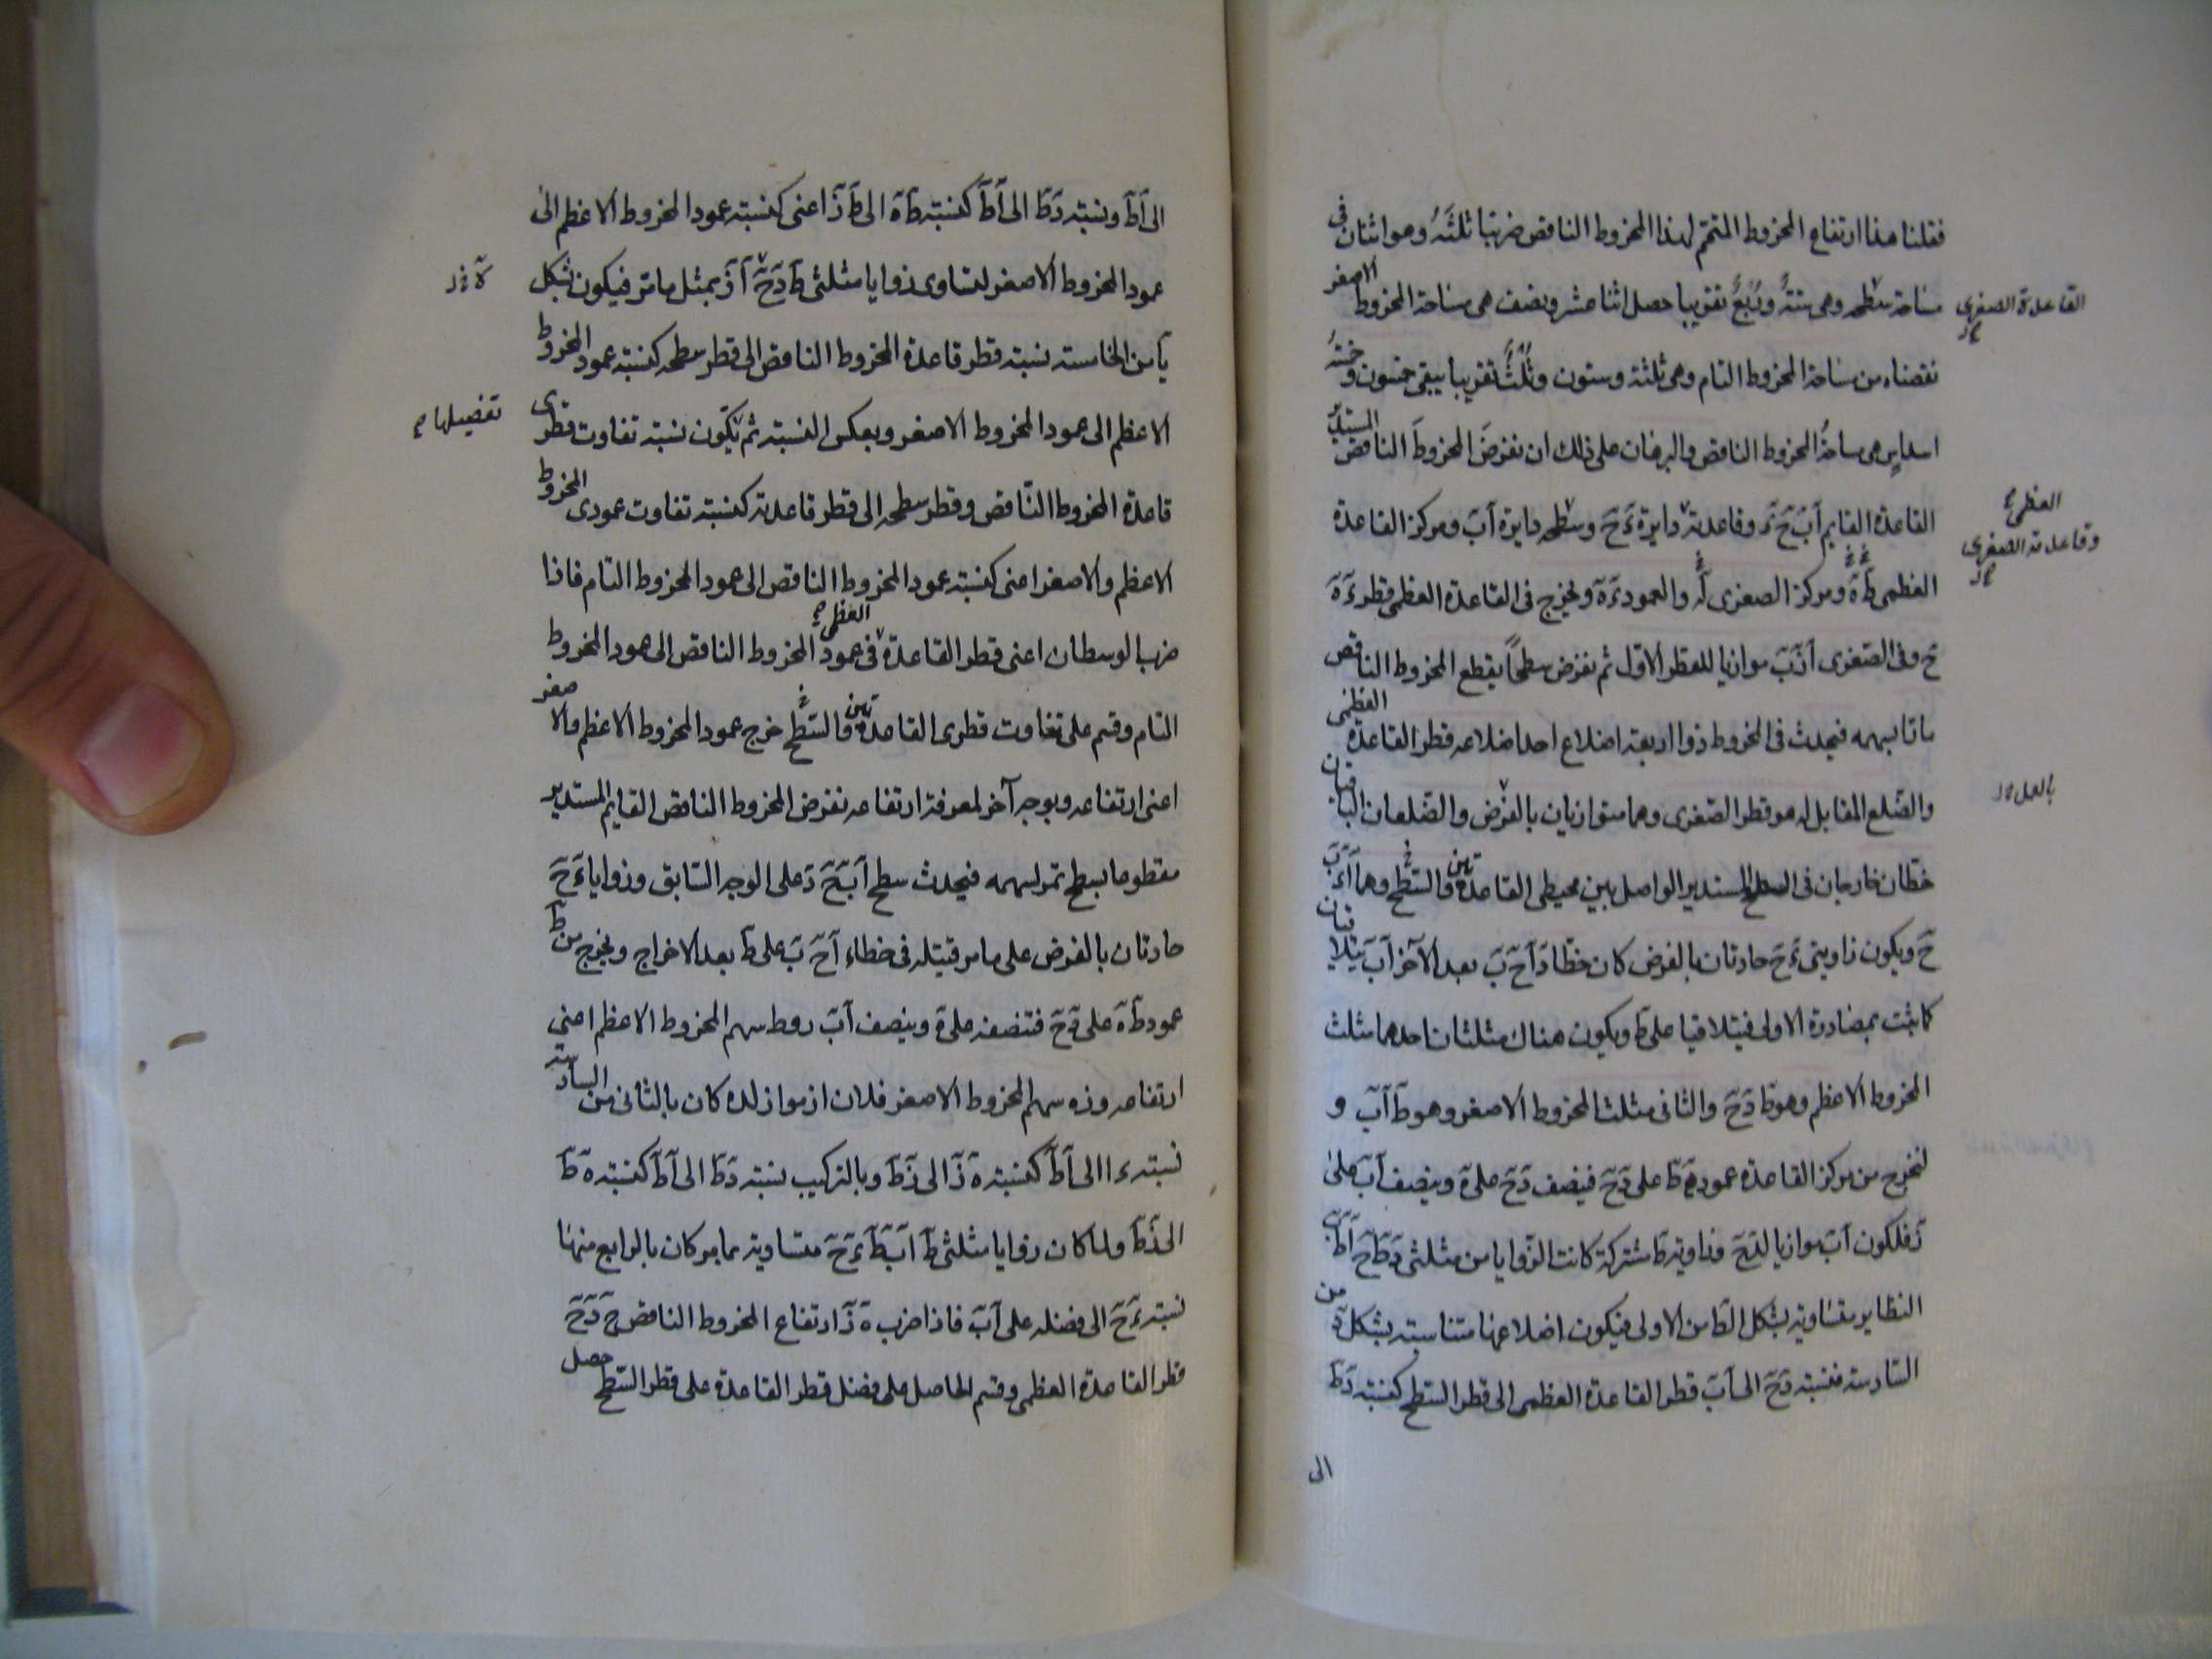 فقلنا هذا ارتفاع المخروط المتمم لهذا المخروط الناقص ضربنا ثلثه وهو اثنان في
مساحة سطحه وهى ستة وربع تقريبا حصل اثنا عشر ونصف هى مساحة المخروط الاصغر
القاعدة الصغرى
نقصناه من مساحة المخروط التام وهى ثلثة وستون وثلث تقريبا يبقى خمسون وخمسة
اسداس هى مساحة المخروط الناقص والبرهان على ذلك ان نفرض المخروط الناقص المستدير
القاعدة القايم آ ب ح ء وقاعدته دايرة ء ح وسطحه دايرة آ ب ومركز القاعدة
العظمى
وقاعدته الصغرى
العظمى ه ومركز الصغرى ز والعمود ز ه ونخرج فى القاعدة العظمى قطر ء ه
ح وفى الصغرى آ ز ب موازيا للقطر الاول ثم نفرض سطحا يقطع المخروط الناقص
مارا بسهمه فيحدث فى المخروط ذو اربعة اضلاع احد اضلاعه قطر القاعدة العظمى
والضلع المقابل له هو قطر الصغرى وهما متوازيان بالفرض والضلعان الباقيان
بالعمل
خطان خارجان فى السطح المستدير الواصل بين محيطى القاعدتين والسطح وهما آ ء ب
ح ويكون زاويتى ء ح حادتان بالفرض كان خطا ء آ ح ب بعد الآخر آ ب يتلاقيان
كما ثبت بمصادرة الاولى فيتلاقيا على ط ويكون هناك مثلثان احدهما مثلث
المخروط الاعظم وهو ط ء ح والثانى مثلث المخروط الاصغر وهو ط آ ب و
لنخرج من مركز القاعدة عمود ه ط على ء ح فينصف ء ح على ه وينصف آ ب على
ز فلكون آ ب موازيا لء ح وزاوية ط مشتركة كانت الزوايا من مثلثى ء ط ح آ ط ب
النظاير متساوية بشكل الكط من الاولى فيكون اضلاعها متناسبة بشكل د من
السادسة فنسبة ء ح الى آ ب قطر القاعدة العظمى الى قطر السطح كنسبة ء ط
الى
الى آ ط ونسبة ء ط الى آ ط كنسبة ط ه الى ط ز اعنى كنسبة عمود المخروط الاعظم الى
عمود المخروط الاصغر لتساوى زوايا مثلثى ط ء ح آ ز بمثل ما مر فيكون بشكل
يا من الخامسة نسبة قطر قاعدة المخروط الناقص الى قطر سطحه كنسبة عمود المخروط
الاعظم الى عمود المخروط الاصغر وبعكس النسبة ثم تكون نسبة تفاوت قطرى
تفصيلها
قاعدة المخروط الناقص وقطر سطحه الى قطر قاعدته كنسبة تفاوت عمودى المخروط
الاعظم والاصغر اعنى كنسبة عمود المخروط الناقص الى عمود المخروط التام فاذا
ضرب الوسطان اعنى قطر القاعدة العظمى فى عمود المخروط الناقص الى عمود المخروط
التام وقسم على تفاوت قطرى القاعدتين والسطح خرج عمود المخروط الاعظم والاصغر
اعنى ارتفاعه وبوجه آخر لمعرفة ارتفاعه نفرض المخروط الناقص القايم المستدير
مقطوعا بسطح تمر لسهمه فيحدث سطح آ ب ح ء على الوجه السابق وزوايا ء ح
حادتان بالفرض على ما مر قبيله فى خطاء آ ح ب على ط بعد الاخراج ونخرج من ط
عمود ط ه على ء ح فتنصفه على ه وينصف آ ب و ط سهم المخروط الاعظم اعنى
ارتفاعه و ز ه سهم المخروط الاصغر فلان از مواز لده كان بالثانى من السادسة
نسبة ء ا الى آ ط كنسبة ه ز الى ز ط وبالتركيب نسبة ء ط الى آ ط كنسبة ه ط
الى ز ط ولما كان زوايا مثلثى ط آ ب ط ء ح متساوية بما مر كان بالرابع منها
نسبة ء ح الى فضله على آ ب فاذا ضرب ه ز ارتفاع المخروط الناقص فى ء ح
قطر القاعدة العظمى وقسم الحاصل على فضل قطر القاعدة على قطر السطح حصل